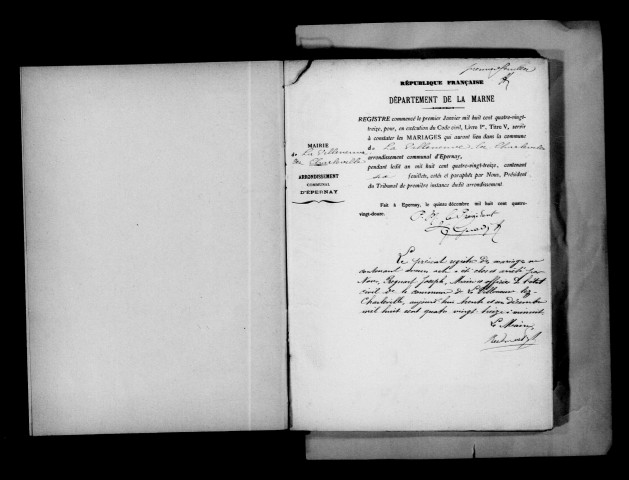 premier feuillet
RÉPUBLIQUE FRANÇAISE
DÉPARTEMENT DE LA MARNE
REGISTRE commencé le premier Janvier mil huit cent quatre-vingt-
treize, pour, en exécution du Code civil, Livre Ier, Titre V, servir
à constater les MARIAGES qui auront lieu dans la commune
de La Villeneuve-les-Charleville
arrondissement communal d'Epernay,
pendant ledit an mil huit cent quatre-vingt-treize, contenant
feuillets, cotés et paraphés par Nous, Président
du Tribunal de première instance dudit arrondissement
MAIRIE
de La Villeneuve
les Charleville
ARRONDISSEMENT
COMMUNAL
D'EPERNAY
Fait à Epernay, le quinze décembre mil huit cent quatre-
vingt-douze.
P. Le Président
Le présent registre des mariages ne
contenant aucun acte a été clos et arrêté par
Nous, Joseph, Maire et officier de l'état
civil de la commune de La Villeneuve lez-
Charleville, aujourd'hui trente et un décembre
mil huit cent quatre vingt treize à minuit.
Le Maire,